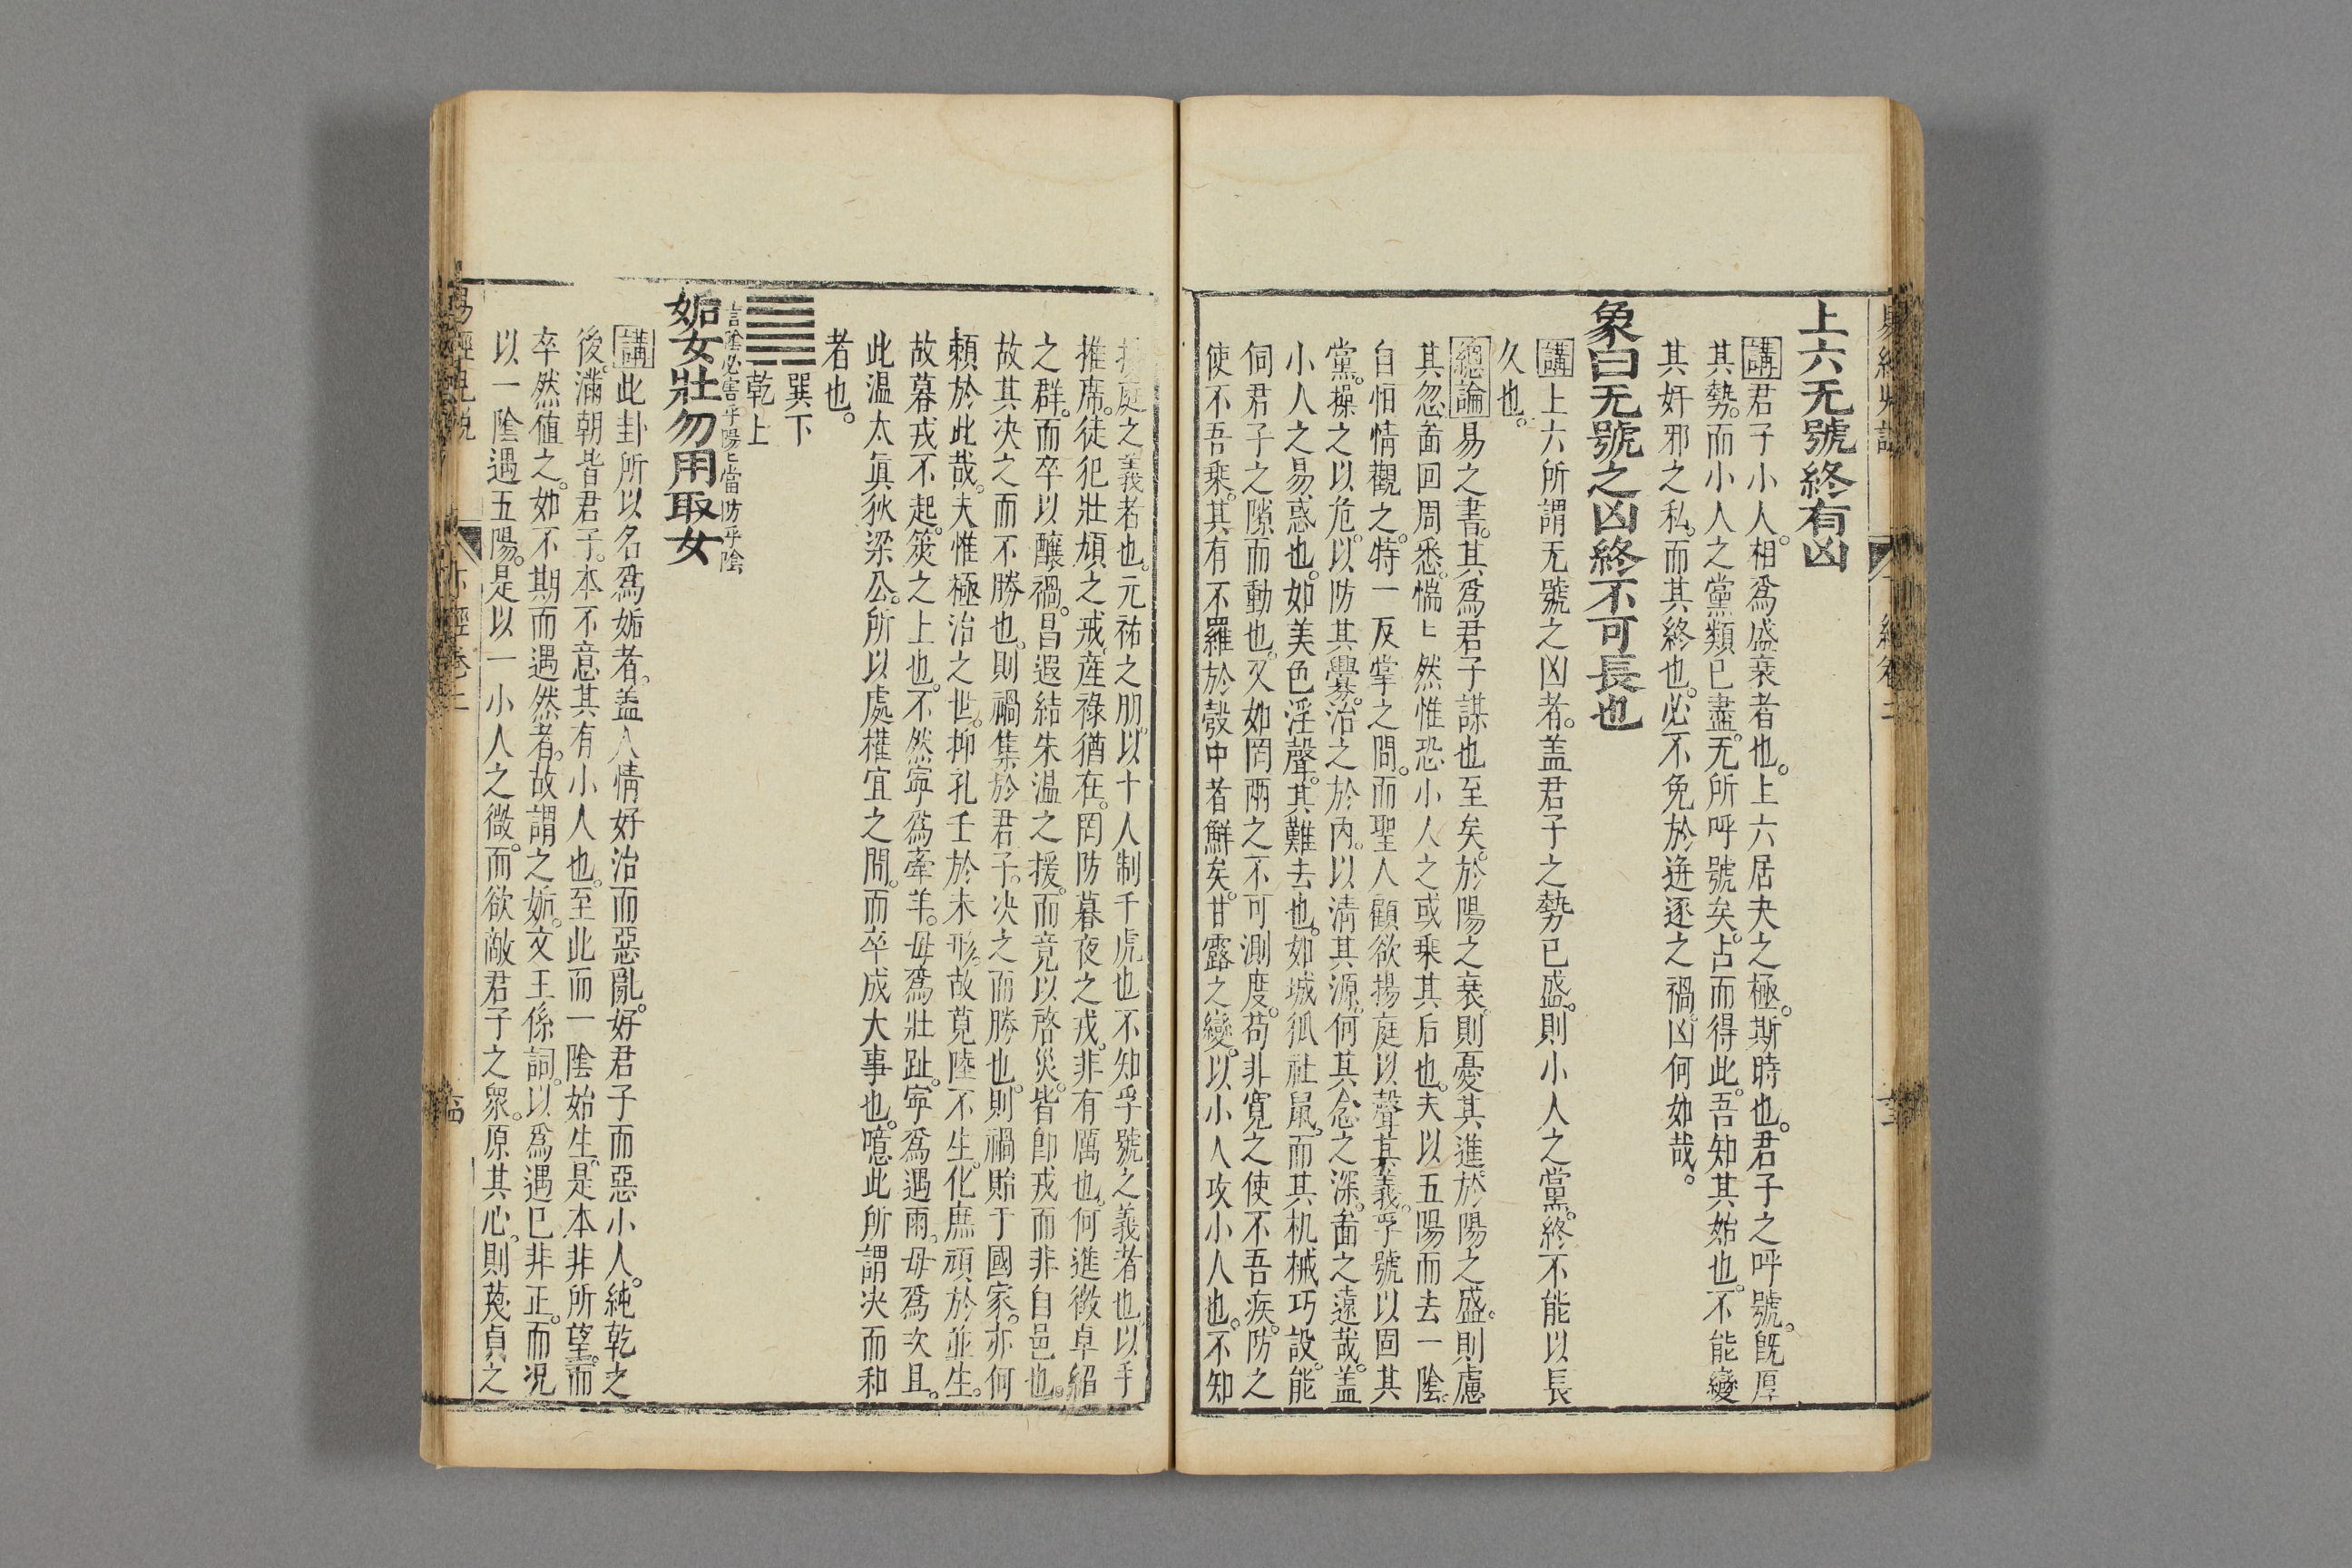 上六无號終有凶
講君子小人。相爲盛衰者也。上六居夬之極。斯時也。君子之呼號。旣厚
其勢。而小人之黨類已盡。无所呼號矣。占而得此。吾知其始也。不能變
其奸邪之私。而其終也。必不免於迸逐之禍。凶何如哉。
象曰无號之凶終不可長也
講上六所謂无號之凶者。盖君子之勢已盛。則小人之黨。終不能以長
久也。
總論易之書。其爲君子謀也至矣。於陽之衰。則憂其進。於陽之盛。則慮
其忽。啚回周悉。惴〻然惟恐小人之或乗其后也。夫以五陽而去一陰。
自怚情觀之。特一反掌之間。而聖人顧欲揚庭以聲其義。孚號以固其
黨。操之以危。以防其釁。治之於內。以淸其源。何其念之深。啚之遠哉。盖
小人之易惑也。如美色淫聲。其難去也。如城狐社鼠。而其机械巧設。能
伺君子之隙而動也。又如罔兩之不可測度。苟非寛之使不吾疾。防之
使不吾乗。其有不羅於彀中者鮮矣。甘露之變。以小人攻小人也。不知
庭之義者也。元祐之朋。以十人制千虎也不知孚號之義者也。以手
推席。徒犯壯頄之戒。産祿猶在。罔防暮夜之戎。非有厲也。何進徵卓紹
之群。而卒以釀禍。昌遐結朱溫之援。而竟以啓災。皆卽戎而非自邑也。
故其决之而不勝也。則禍集於君子。决之而勝也。則禍貽于國家。亦何
頼於此哉。夫惟極治之世。抑孔壬於未形。故莧陸不生。化庶頑於並生。
故暮戎不起。筴之上也。不然寧爲牽羊。毋爲壯趾。寧爲遇雨。毋爲次且。
此温太眞狄梁公。所以處權宜之間。而卒成大事也。噫此所謂决而和
者也。
巽下
乾上
言陰必害乎陽〻當防乎陰
姤女壯勿用取女
講此卦所以名爲姤者。盖人情好治而惡亂。好君子而惡小人。純乾之
後。滿朝皆君子。本不意其有小人也。至此而一陰始生。是本非所望。而
卒然値之。如不期而遇然者。故謂之姤。文王係詞。以爲遇已非正。而况
以一陰遇五陽。是以一小人之微。而欲敵君子之衆。原其心。則蔑貞之